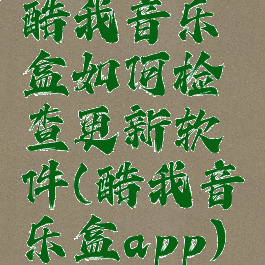 酷我音乐
盒如何检
查更新软
件(酷我音
乐盒app)